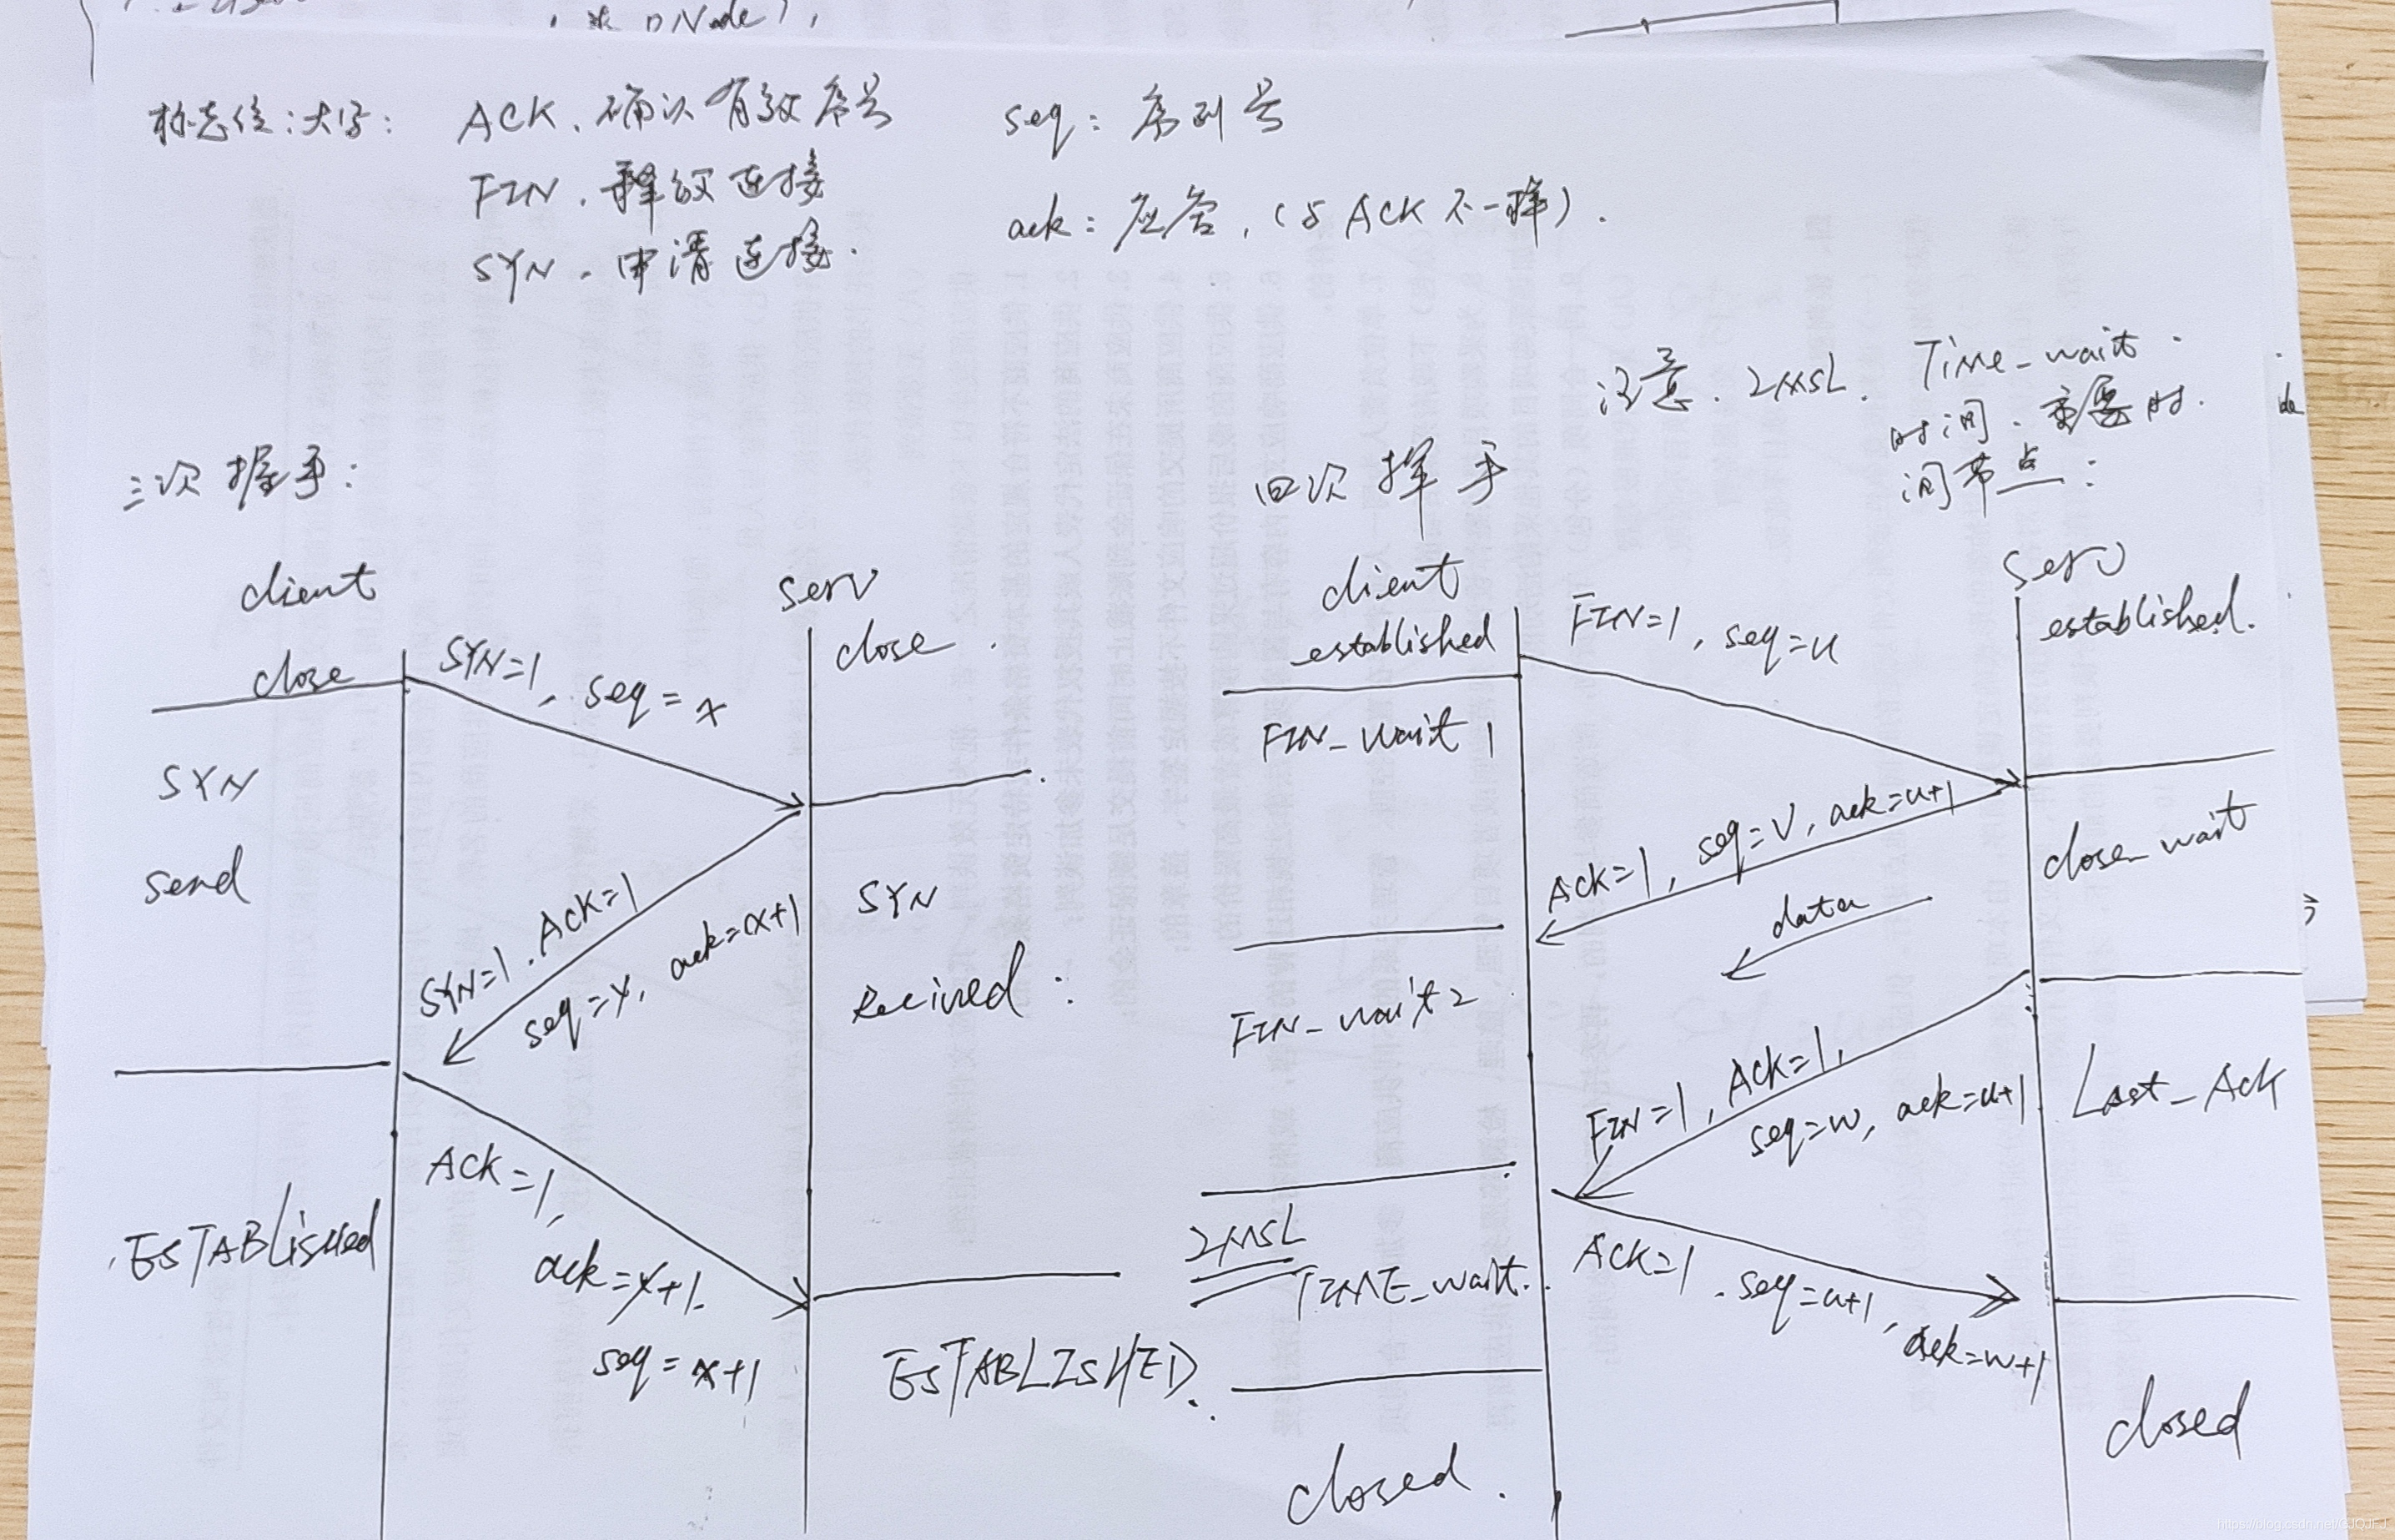 标志位:大写: ACK、确认有效序号
FIN、释放连接
SYN、申请连接.
seq: 序列号
ack: 应答,(与ACK不一样).
注意、2MSL. Time_wait.
时间、重要时
间节点:
三次握手:
client
serv
close
close.
SYN=1, seq=x
SYN
send
SYN=1、ACK=1
seq=y, ack=x+1
SYN
Recived:
ACK=1,
ack=y+1.
seq=x+1
ESTABLisHed
ESTABLISHED.
四次挥手
client
established
serv
established.
FIN=1, seq=u
FIN_wait 1
ACK=1, seq=v, ack=u+1
close_wait
data
FIN_wait2
FIN=1, ACK=1,
seq=w, ack=u+1
Last_Ack
2MSL
TIME_wait.
ACK=1、seq=u+1,
ack=w+1
closed.
closed